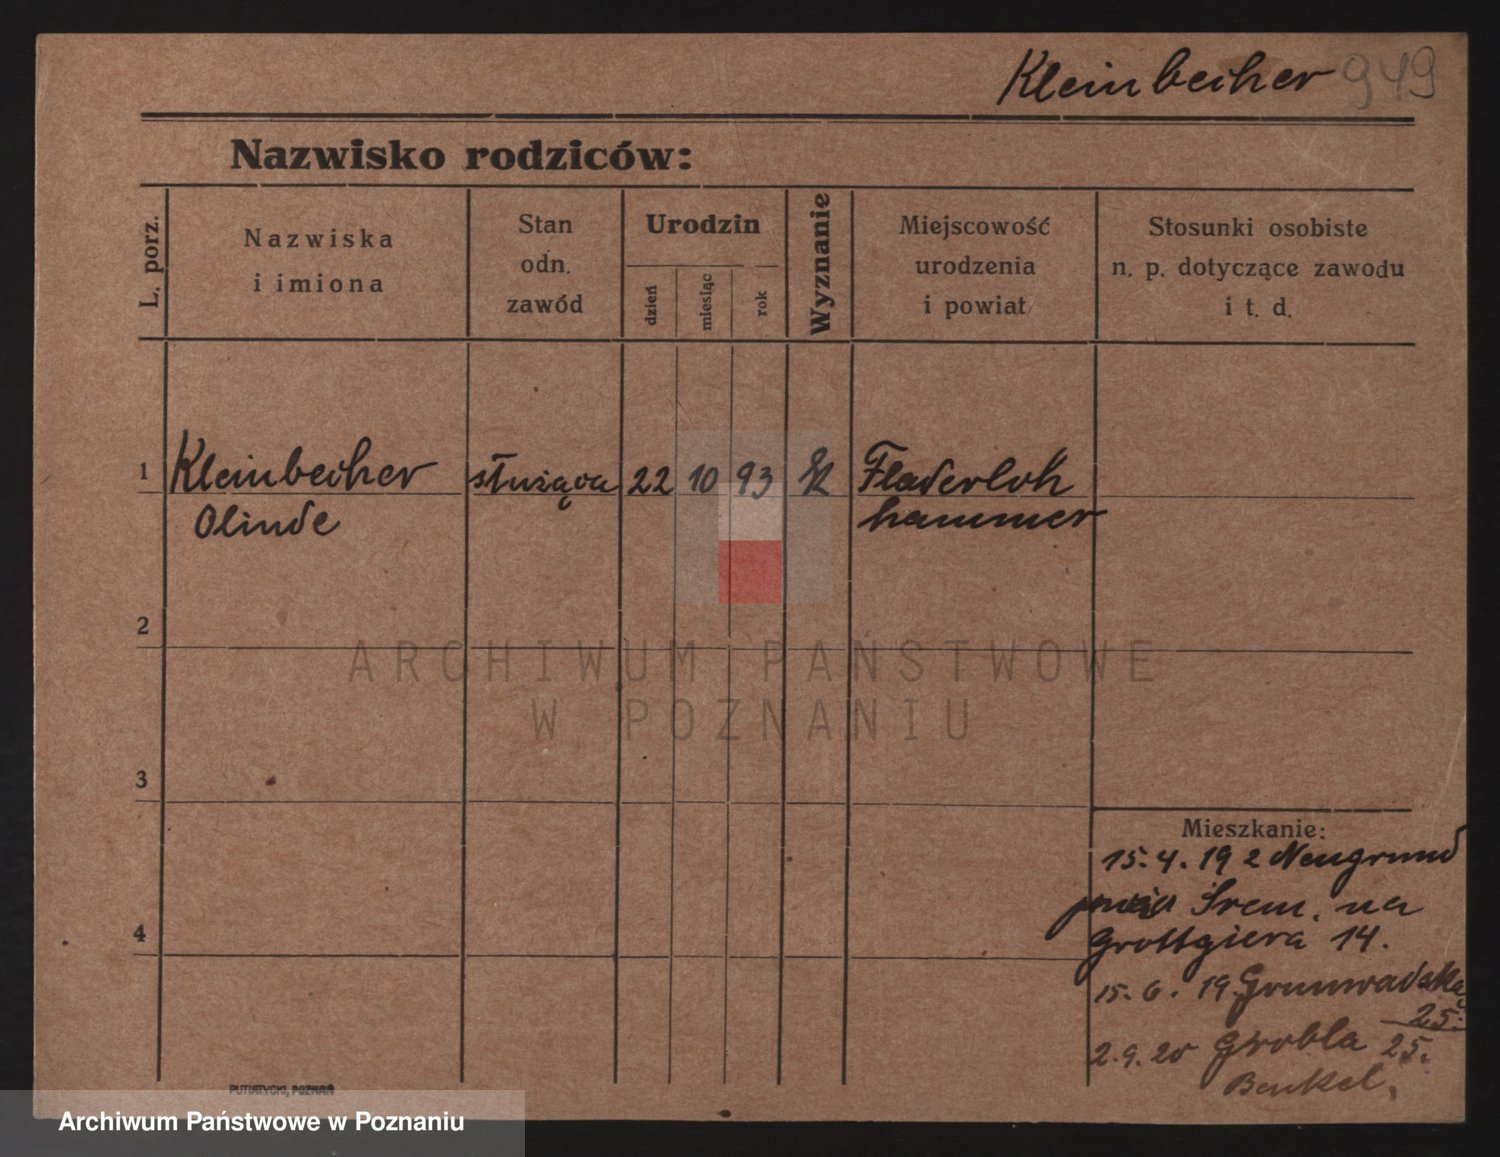 Kleinbecher 949
Nazwisko rodziców:
L. porz.
Nazwiska
i imiona
Stan
odn.
zawód
Urodzin
dzień
miesiąc
rok
Wyznanie
Miejscowość
urodzenia
i powiat
Stosunki osobiste
n. p. dotyczące zawodu
i t. d.
1 Kleinbecher służąca 22 10 93 Fladerloh
Olinde hammer
2
ARCHIWUM PAŃSTWOWE
W POZNANIU
3
Mieszkanie:
15. 4. 19 z Neugrund
Śrem. na
4
Grottgiera 14.
15. 6. 19. Grunwaldska
25.
2. 9. 20 Grobla 25.
PUTIATYCKI, POZNAŃ
Archiwum Państwowe w Poznaniu